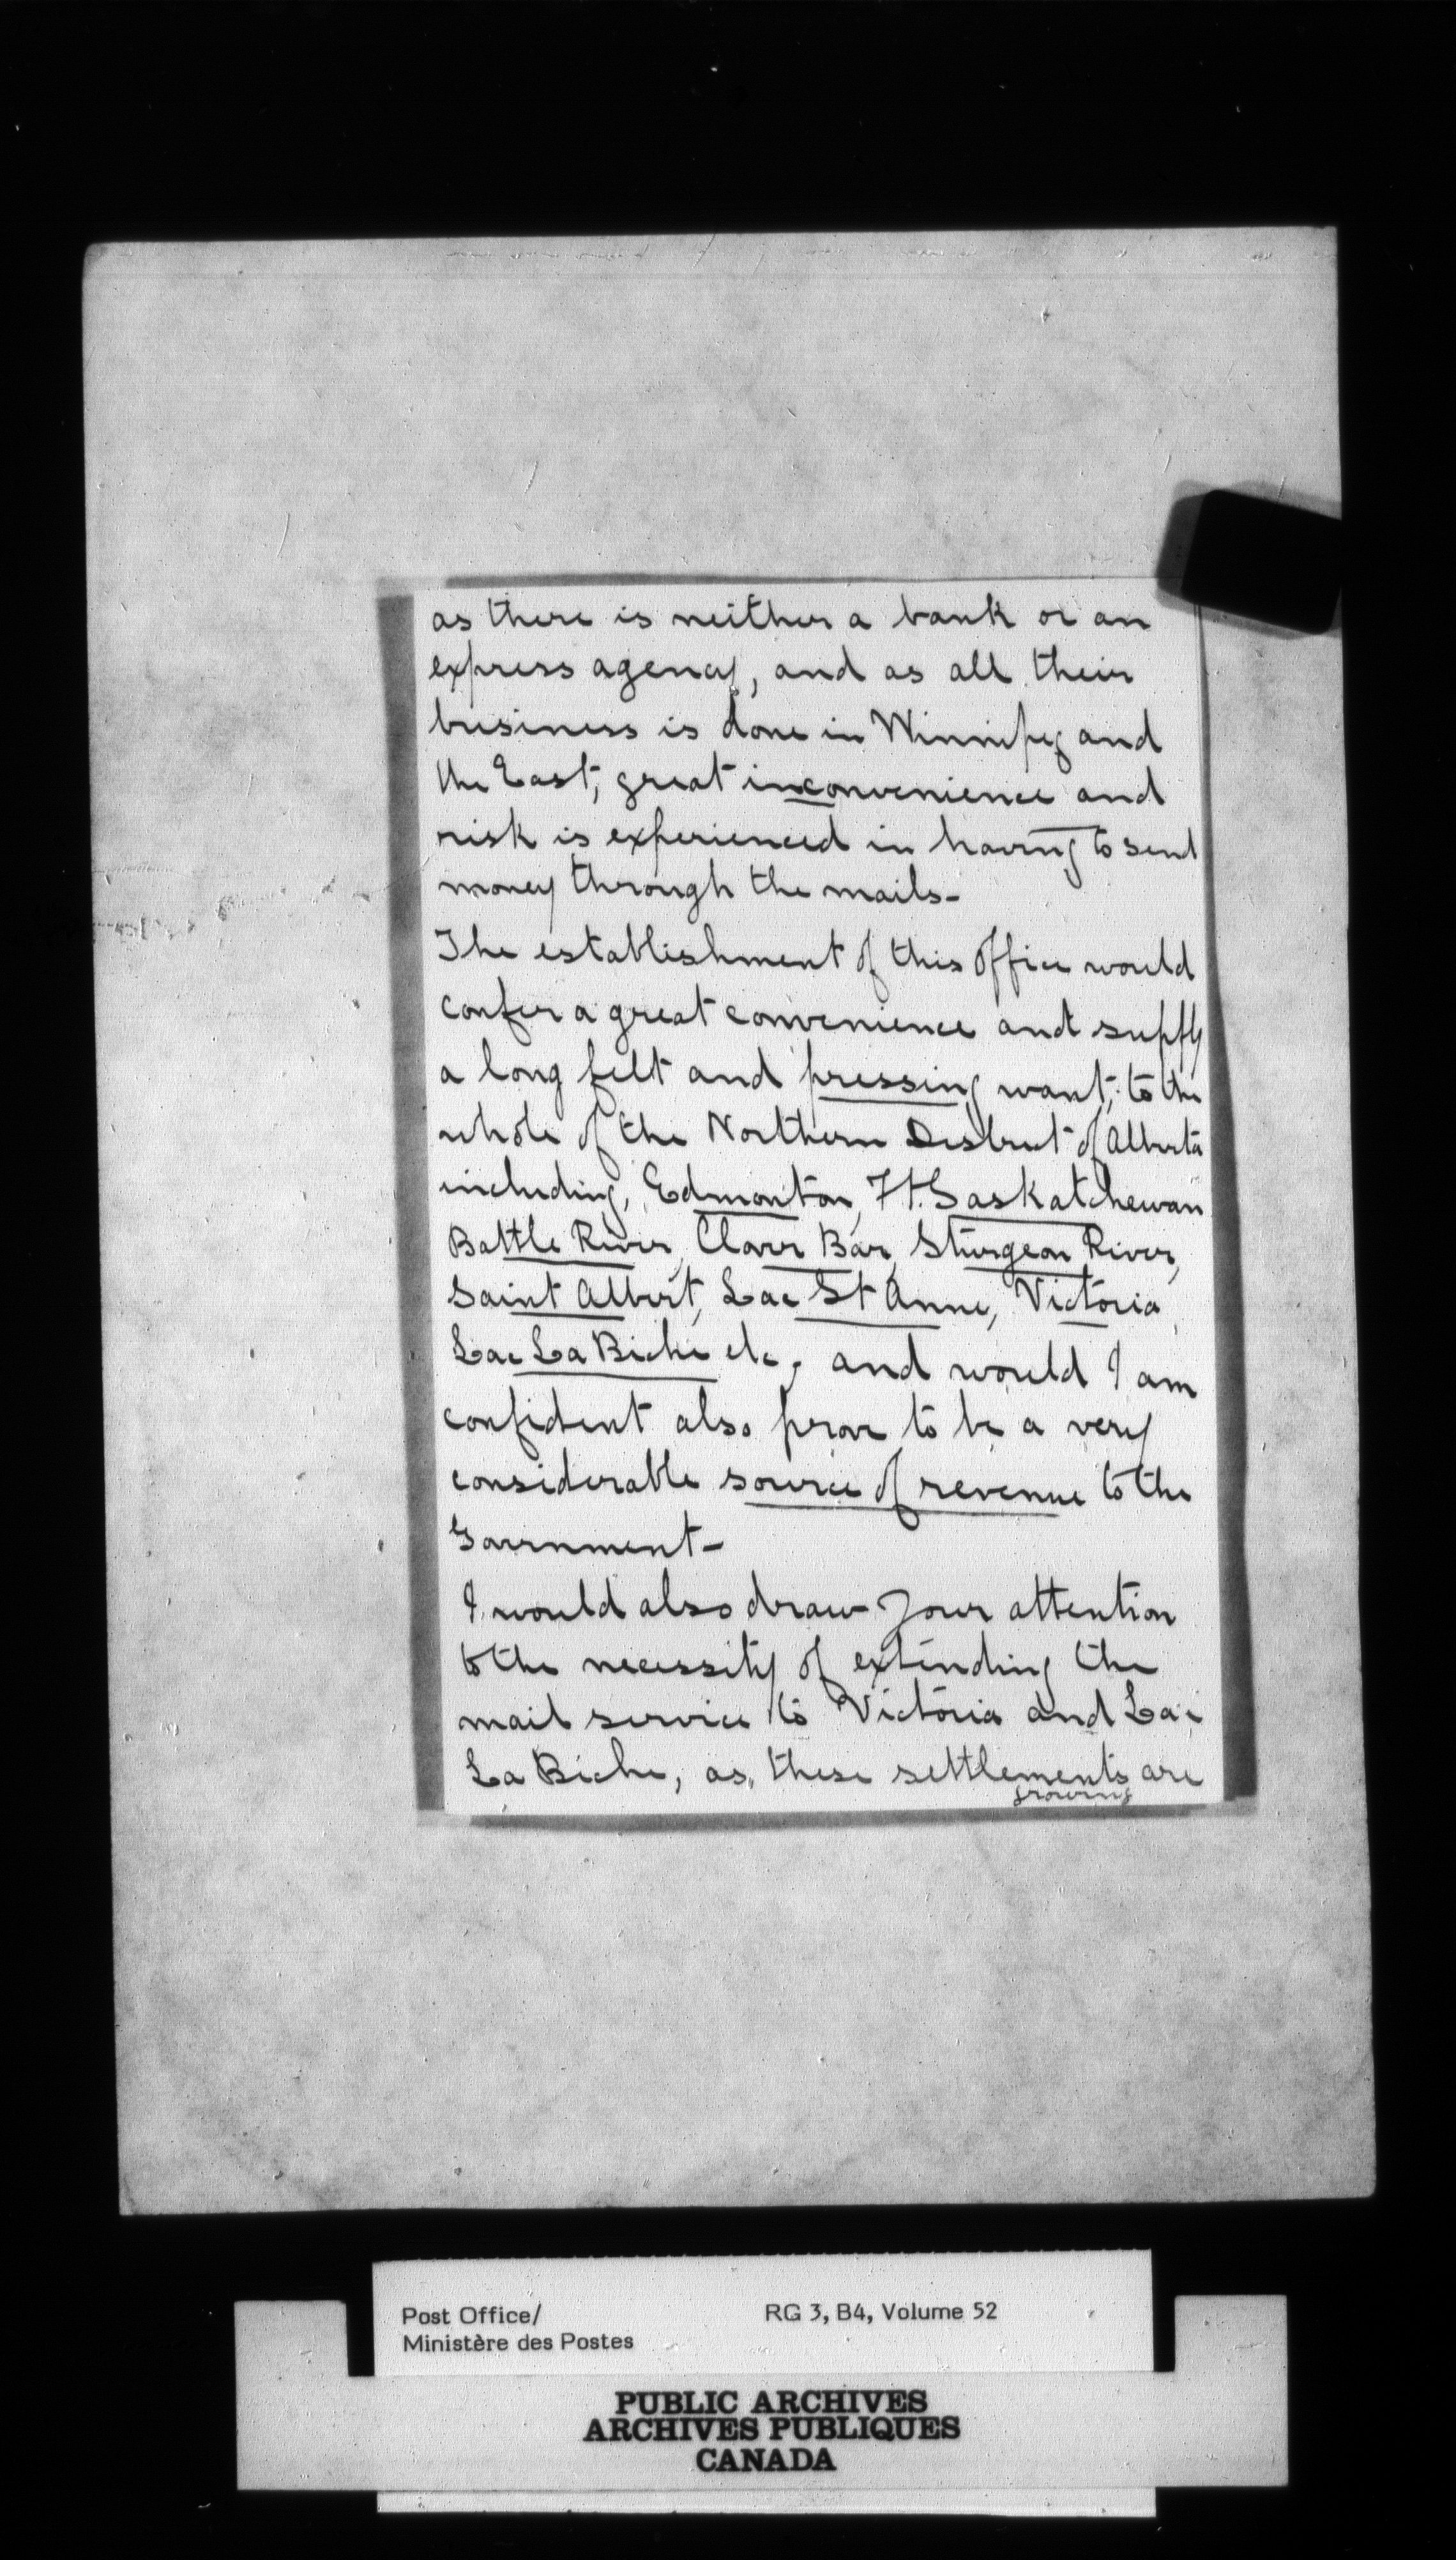 as there is neither a bank or an
express agency, and as all their
business is done in Winnipeg and
the East, great inconvenience and
risk is experienced in having to send
money through the mails-
The establishment of this office would
confer a great convenience and supply
a long felt and pressing want, to the
whole of the Northern District of Alberta
including, Edmonton, Ft. Saskatchewan
Battle River, Clover Bar, Sturgeon River,
Saint Albert, Lac St Anne, Victoria,
Lac La Biche etc, and would I am
confident also prove to be a very
considerable source of revenue to the
Government-
I would also draw your attention
to the necessity of extending the
mail service to Victoria and Lac
La Biche, as, these settlements are
growing
Post Office/ RG 3, B4, Volume 52
Ministère des Postes
PUBLIC ARCHIVES
ARCHIVES PUBLIQUES
CANADA